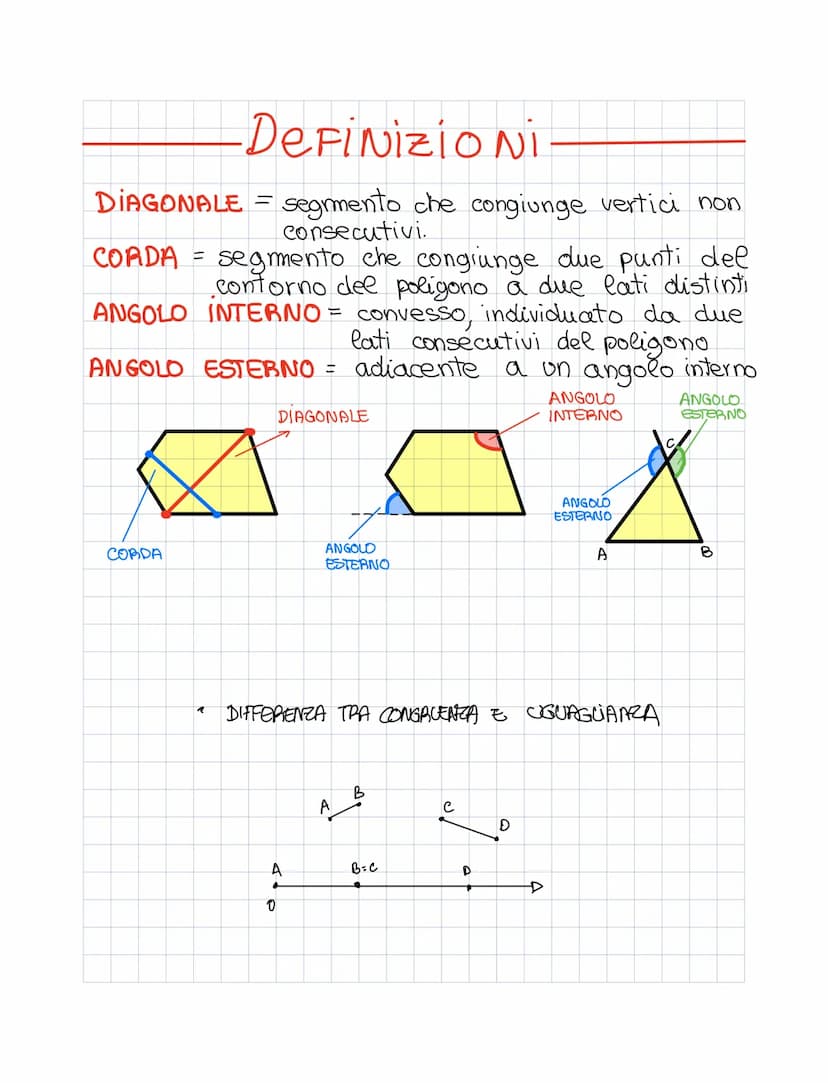 DEFINIZIONI
DIAGONALE = segmento che congiunge vertici non
consecutivi.
CORDA = segmento che congiunge due punti del
contorno del poligono a due lati distinti
ANGOLO INTERNO = convesso, individuato da due
lati consecutivi del poligono
ANGOLO ESTERNO = adiacente a un angolo interno
DIAGONALE
CORDA
ANGOLO
INTERNO
ANGOLO
ESTERNO
ANGOLO
ESTERNO
ANGOLO
ESTERNO
C
A
B
• DIFFERENZA TRA CONGRUENZA E UGUAGLIANZA
A
B
C
D
A
B=C
D
O